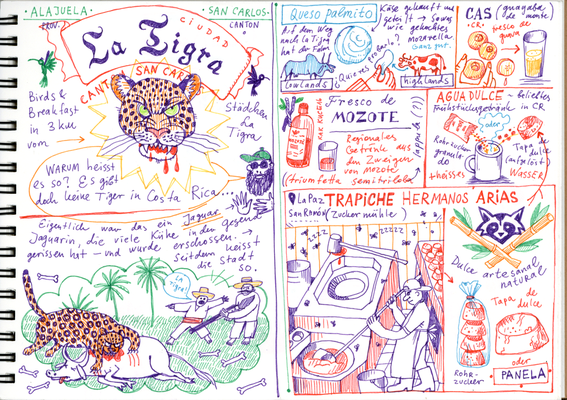 ALAJUELA
PROV.
SAN CARLOS
CANTON
CIUDAD
La Tigra
CANTON SAN CARLOS
Birds &
Breakfast
in 3 km
vom
Städtchen
La
Tigra
WARUM heisst
es so? Es gibt
doch keine Tiger in Costa Rica...
Eigentlich war das ein Jaguar.
Jaguarin, die viele Kühe in der Gegend
gerissen hat – und wurde erschossen. →
Seitdem heisst
die Stadt
so.
Queso palmito
Auf dem Weg
nach La Tigra
hat der Fahrer
Käse gekauft und
geteilt → sowas
wie gekochtes
mozarella.
Ganz gut.
¿Quieres probar?
lowlands
highlands
CAS (guayaba
CR
fresco de
guava
Fresco de
MOZOTE
Regionales
Getränk aus
den Zweigen
von mozote
(triumfetta semitriloba)
AGUA DULCE – beliebtes
Frühstücksgetränk in CR
oder
Rohrzucker
granulado
+ heisses
Tapa de
dulce
(aufgelöst)
WASSER
La Paz,
San Ramón
TRAPICHE HERMANOS ARIAS
(Zuckermühle)
zzzz
zzzzz
Dulce artesanal
natural
Tapa de
dulce
oder
Rohr-
zucker
PANELA